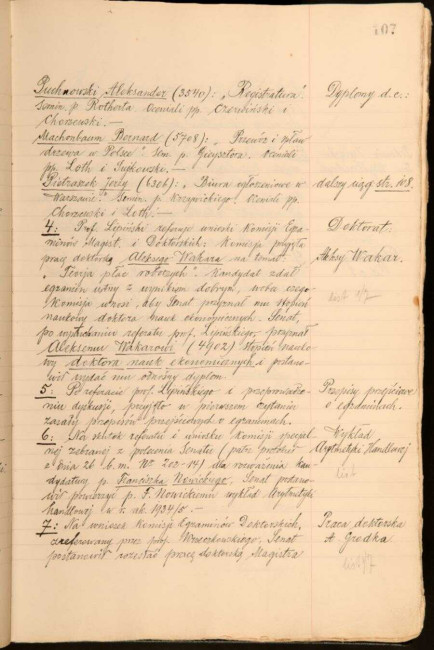 107
Puchnowski Aleksander (3540): „Registratura".
Semin. p. Rotherta. Oceniali pp. Czerwiński i
Chorzewski. —
Dyplomy d.c.:
Machonbaum Bernard (5708): „Przewóz i spław
drzewa w Polsce". Sem. p. Grysztora. Oceniali
pp. Loth i Sujkowski. —
Pietraszek Jerzy (6306): „Biura ogłoszeniowe w
Warszawie". Semin. p. Krzywickiego. Oceniali pp.
Chorzewski i Loth. —
dalszy ciąg str. 108.
4: Prof. Lipiński referuje wnioski Komisji Egza-
minów Magist. i Doktorskich: Komisja przyjęła
pracę doktorską Aleksego Wakara na temat:
„Teorja płac roboczych". Kandydat zdał
egzamin ustny z wynikiem dobrym, wobec czego
Komisja wnosi, aby Senat przyznał mu stopień
naukowy doktora nauk ekonomicznych. Senat,
po wysłuchaniu referatu prof. Lipińskiego, przyznał
Aleksemu Wakarowi (4902) stopień nauko-
wy doktora nauk ekonomicznych i postano-
wił wydać mu odnośny dyplom.
Doktorat:
Aleksy Wakar.
5: Po referacie prof. Lipińskiego i przeprowadze-
niu dyskusji, przyjęto w pierwszem czytaniu
zasady przepisów przejściowych o egzaminach.
Przepisy przejściowe
o egzaminach.
6: Na skutek referatu i wniosku Komisji specjal-
nej zebranej z polecenia Senatu (patrz protokół
z dnia 26 b. m. Nr 200-14) dla rozważenia kan-
dydatury p. Franciszka Nowickiego, Senat postano-
wił powierzyć p. F. Nowickiemu wykład Arytmetyki
handlowej w r. ak. 1934/5. —
Wykład
Arytmetyki Handlowej
list
7: Na wniosek Komisji Egzaminów Doktorskich,
zreferowany przez prof. Wrzoszkowskiego, Senat
postanowił rozesłać pracę doktorską Magistra
Praca doktorska
A. Grodka